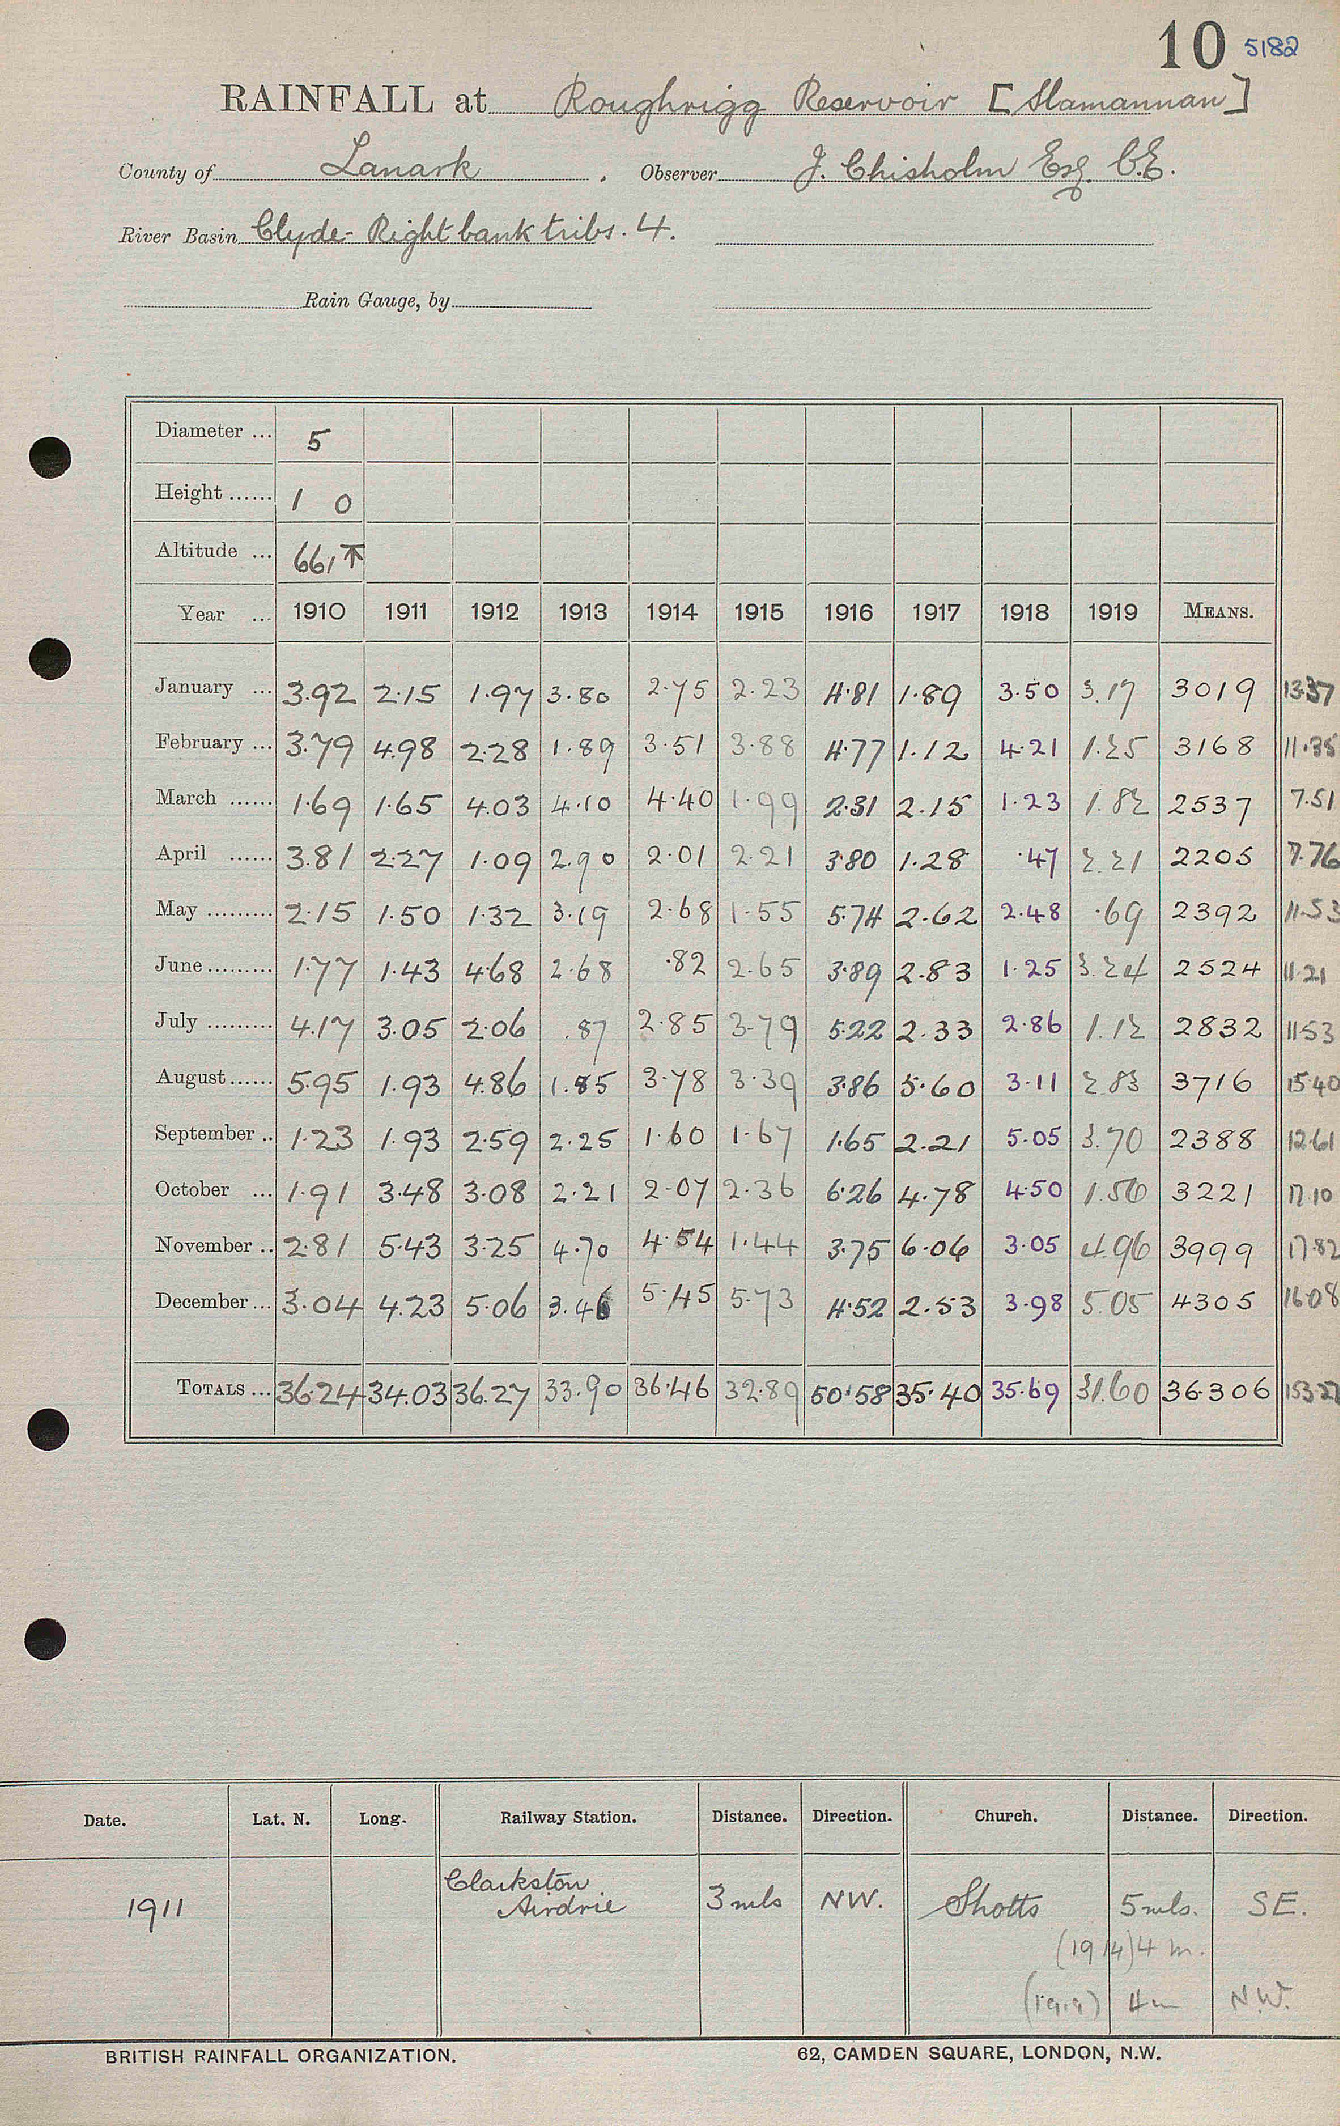 10 5182
RAINFALL at Roughrigg Reservoir [Slamannan]
County of Lanark . Observer J. Chisholm Esq. C.E.
River Basin Clyde - Right bank tribs. 4.
Rain Gauge, by
Diameter ... 5
Height ...... 1 0
Altitude ... 661 T
Year ... 1910 1911 1912 1913 1914 1915 1916 1917 1918 1919 MEANS.
January ... 3.92 2.15 1.97 3.80 2.75 2.23 4.81 1.89 3.50 3.17 3019 13.37
February ... 3.79 4.98 2.28 1.89 3.51 3.88 4.77 1.12 4.21 1.25 3168 11.35
March ...... 1.69 1.65 4.03 4.10 4.40 1.99 2.31 2.15 1.23 1.82 2537 7.51
April ...... 3.81 2.27 1.09 2.90 2.01 2.21 3.80 1.28 .47 2.21 2205 7.76
May ......... 2.15 1.50 1.32 3.19 2.68 1.55 5.74 2.62 2.48 .69 2392 11.53
June ......... 1.77 1.43 4.68 2.68 .82 2.65 3.89 2.83 1.25 3.24 2524 11.21
July ......... 4.17 3.05 2.06 .87 2.85 3.79 5.22 2.33 2.86 1.12 2832 11.53
August ...... 5.95 1.93 4.86 1.85 3.78 3.39 3.86 5.60 3.11 2.83 3716 15.40
September .. 1.23 1.93 2.59 2.25 1.60 1.67 1.65 2.21 5.05 3.70 2388 12.61
October ... 1.91 3.48 3.08 2.21 2.07 2.36 6.26 4.78 4.50 1.56 3221 17.10
November .. 2.81 5.43 3.25 4.70 4.54 1.44 3.75 6.06 3.05 4.96 3999 17.82
December ... 3.04 4.23 5.06 3.46 5.45 5.73 4.52 2.53 3.98 5.05 4305 16.08
TOTALS ... 36.24 34.03 36.27 33.90 36.46 32.89 50.58 35.40 35.69 31.60 36.306 153.27
Date. Lat. N. Long. Railway Station. Distance. Direction. Church. Distance. Direction.
1911 Clarkston Airdrie 3 mls NW. Shotts 5 mls. SE.
(1914) 4 m.
(1919) 4 m N.W.
BRITISH RAINFALL ORGANIZATION. 62, CAMDEN SQUARE, LONDON, N.W.